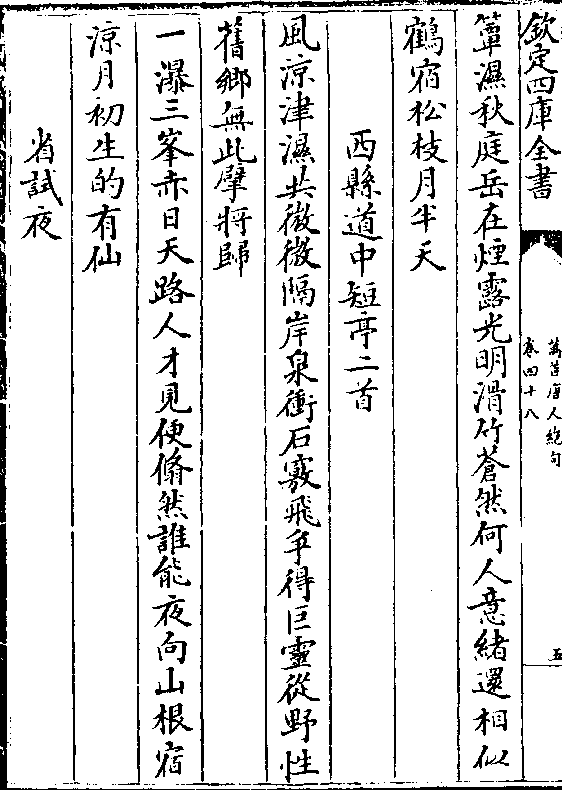 欽定四庫全書
萬首唐人絶句
卷四十八
五
簟濕秋庭岳在煙露光明滑竹蒼然何人意緒還相似
鶴宿松枝月半天
西縣道中短亭二首
風涼津濕共微微隔岸泉衝石竅飛爭得巨靈從野性
舊鄉無此擘將歸
一瀑三峯赤日天路人才見便翛然誰能夜向山根宿
涼月初生的有仙
省試夜